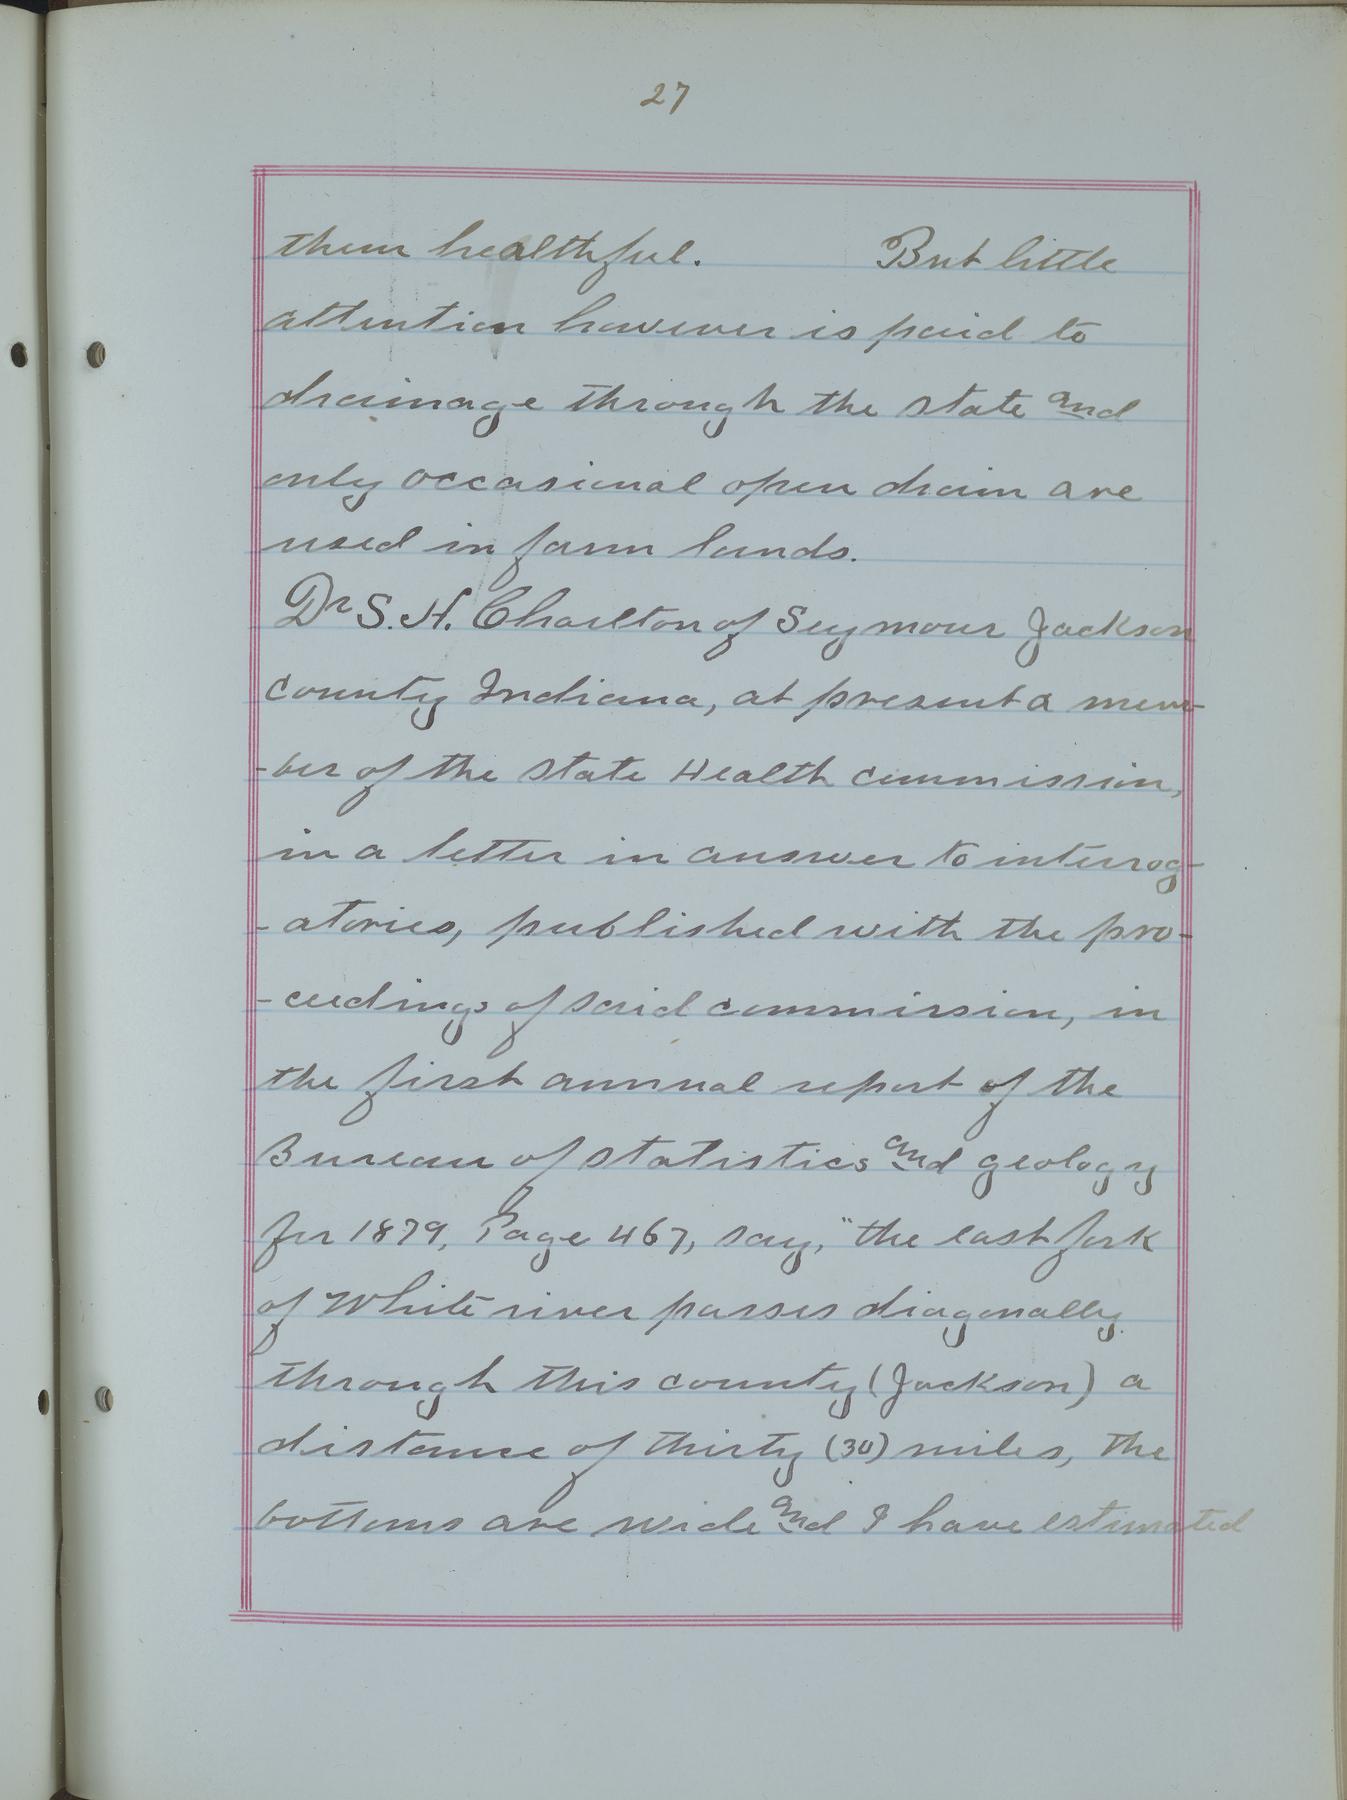 27
them healthful. But little
attention however is paid to
drainage through the state and
only occasional open drain are
used in farm lands.
Dr S. H. Charlton of Seymour Jackson
county Indiana, at present a mem-
-ber of the state Health commission,
in a letter in answer to interrog-
-atories, published with the pro-
-ceedings of said commission, in
the first annual report of the
Bureau of statistics and geology
for 1879, Page 467, say, "the east fork
of White river passes diagonally
through this county (Jackson) a
distance of thirty (30) miles, the
bottoms are wide and I have estimated